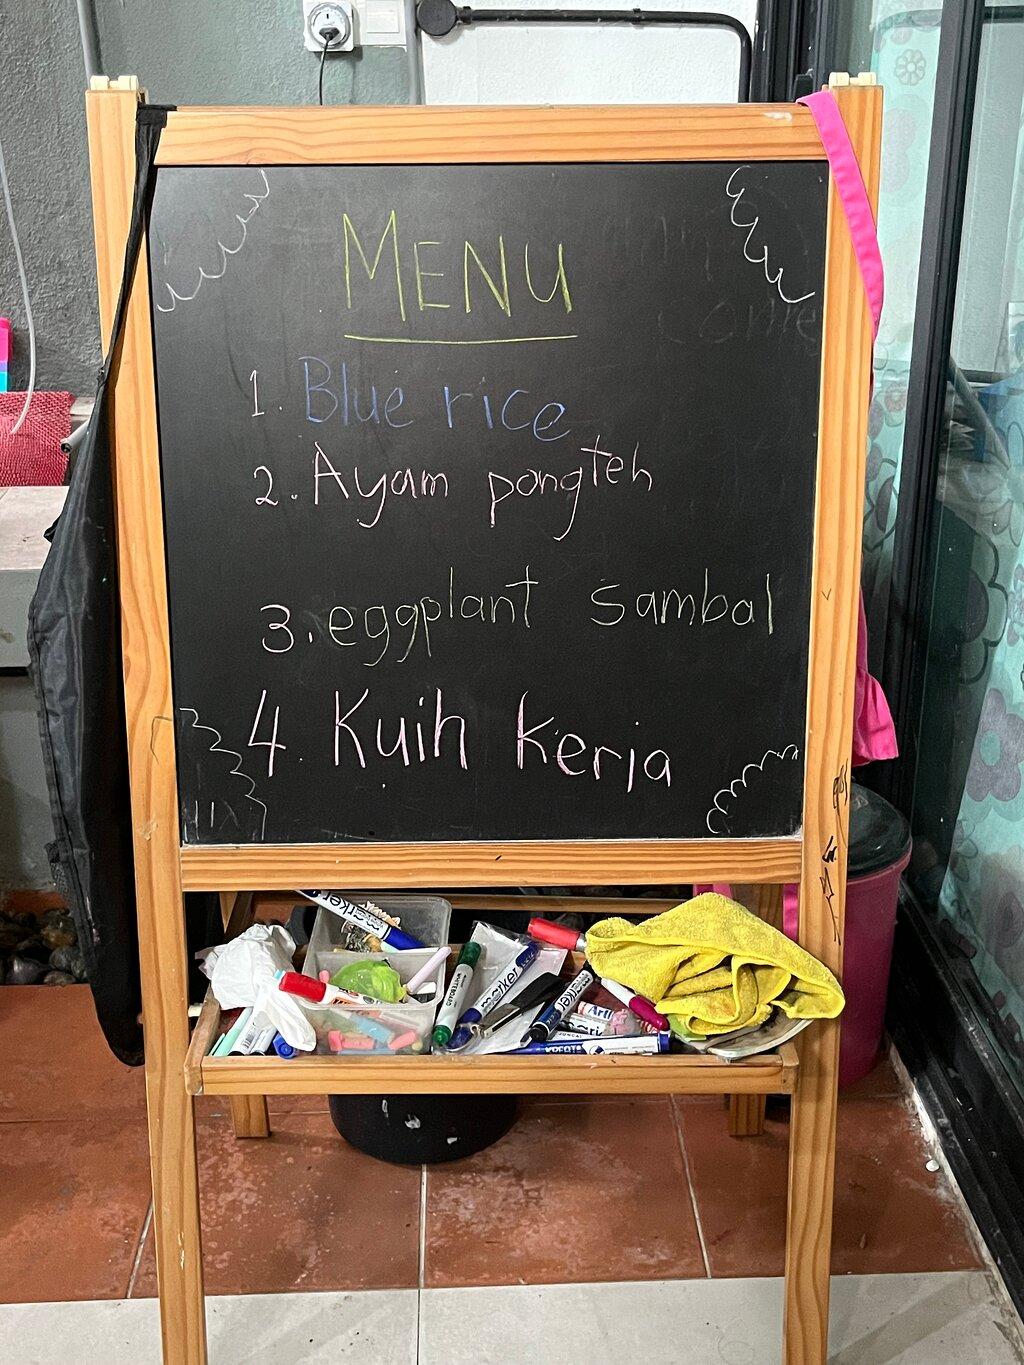 MENU
1. Blue rice
2. Ayam pongteh
3. eggplant sambal
4. Kuih kerja
marker
marker
marker
Artl